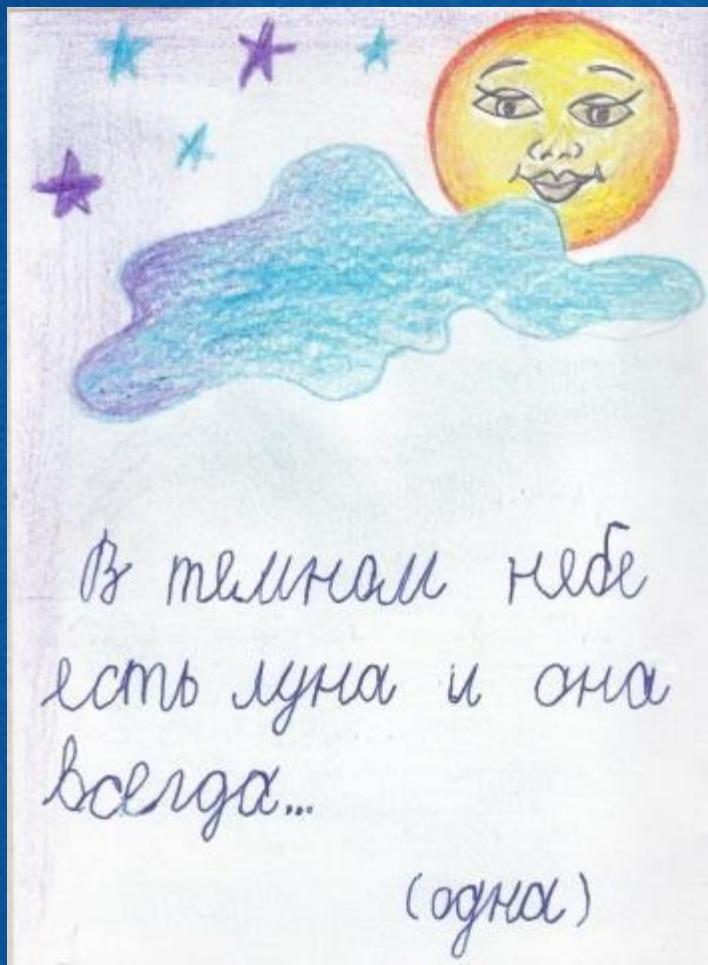 В темном небе
есть луна и она
всегда...
(одна)